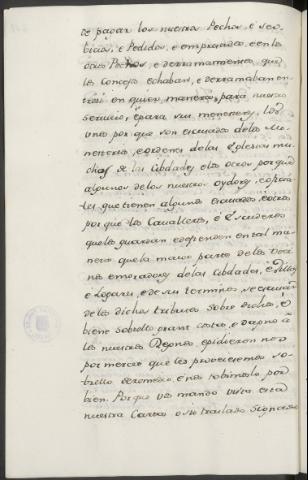 de pagar los nuestros Pechos, e ser-
bicios, e Pedidos, e emprestidos, e en los
otros Pechos, e derramamientos, que
los Concejos echaban, e derramaban en-
tre si en qualquier manera para nuestro
servicio, e para sus menesteres, los
unos por que son escusados de las Mo-
nederias, e ordenes de las Iglesias mu-
chas de las Cibdades e los otros por que
algunos de los nuestros oydores, e oficia-
les que tienen algunos escusados, e otros
por que los Cavalleros, e Escuderos
que los guardan e defienden en tal ma-
nera que la maior parte de los Veci-
nos e moradores de las Cibdades, e Villas
e Logares, e de sus terminos se escusan
de los dichos tributos sobre dichos, e
viene sobello grant costa, e dapno a
los nuestros Regnos, e pidieron nos
por merced que les proveyesemos so-
brello de remedio, e nos tobimoslo por
bien. Porque vos mando vista esta
nuestra Carta o su traslado Signado